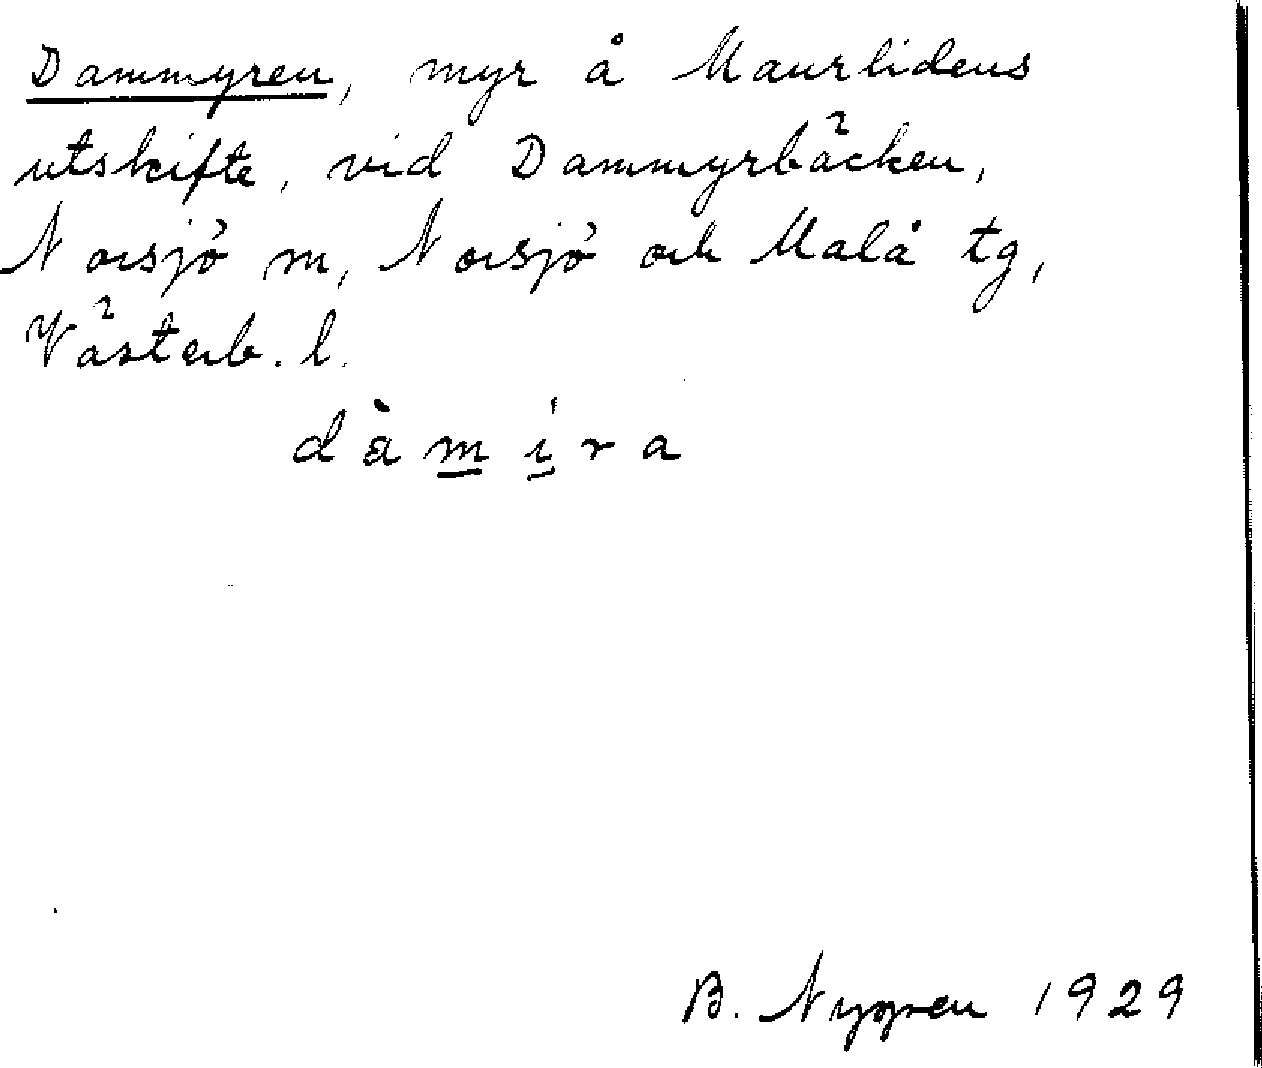 Dammyren, myr å Maurlidens
utskifte, vid Dammyrbäcken,
Norsjö m, Norsjö och Malå tg,
Västerb. l.
dàmíra
B. Nygren 1929